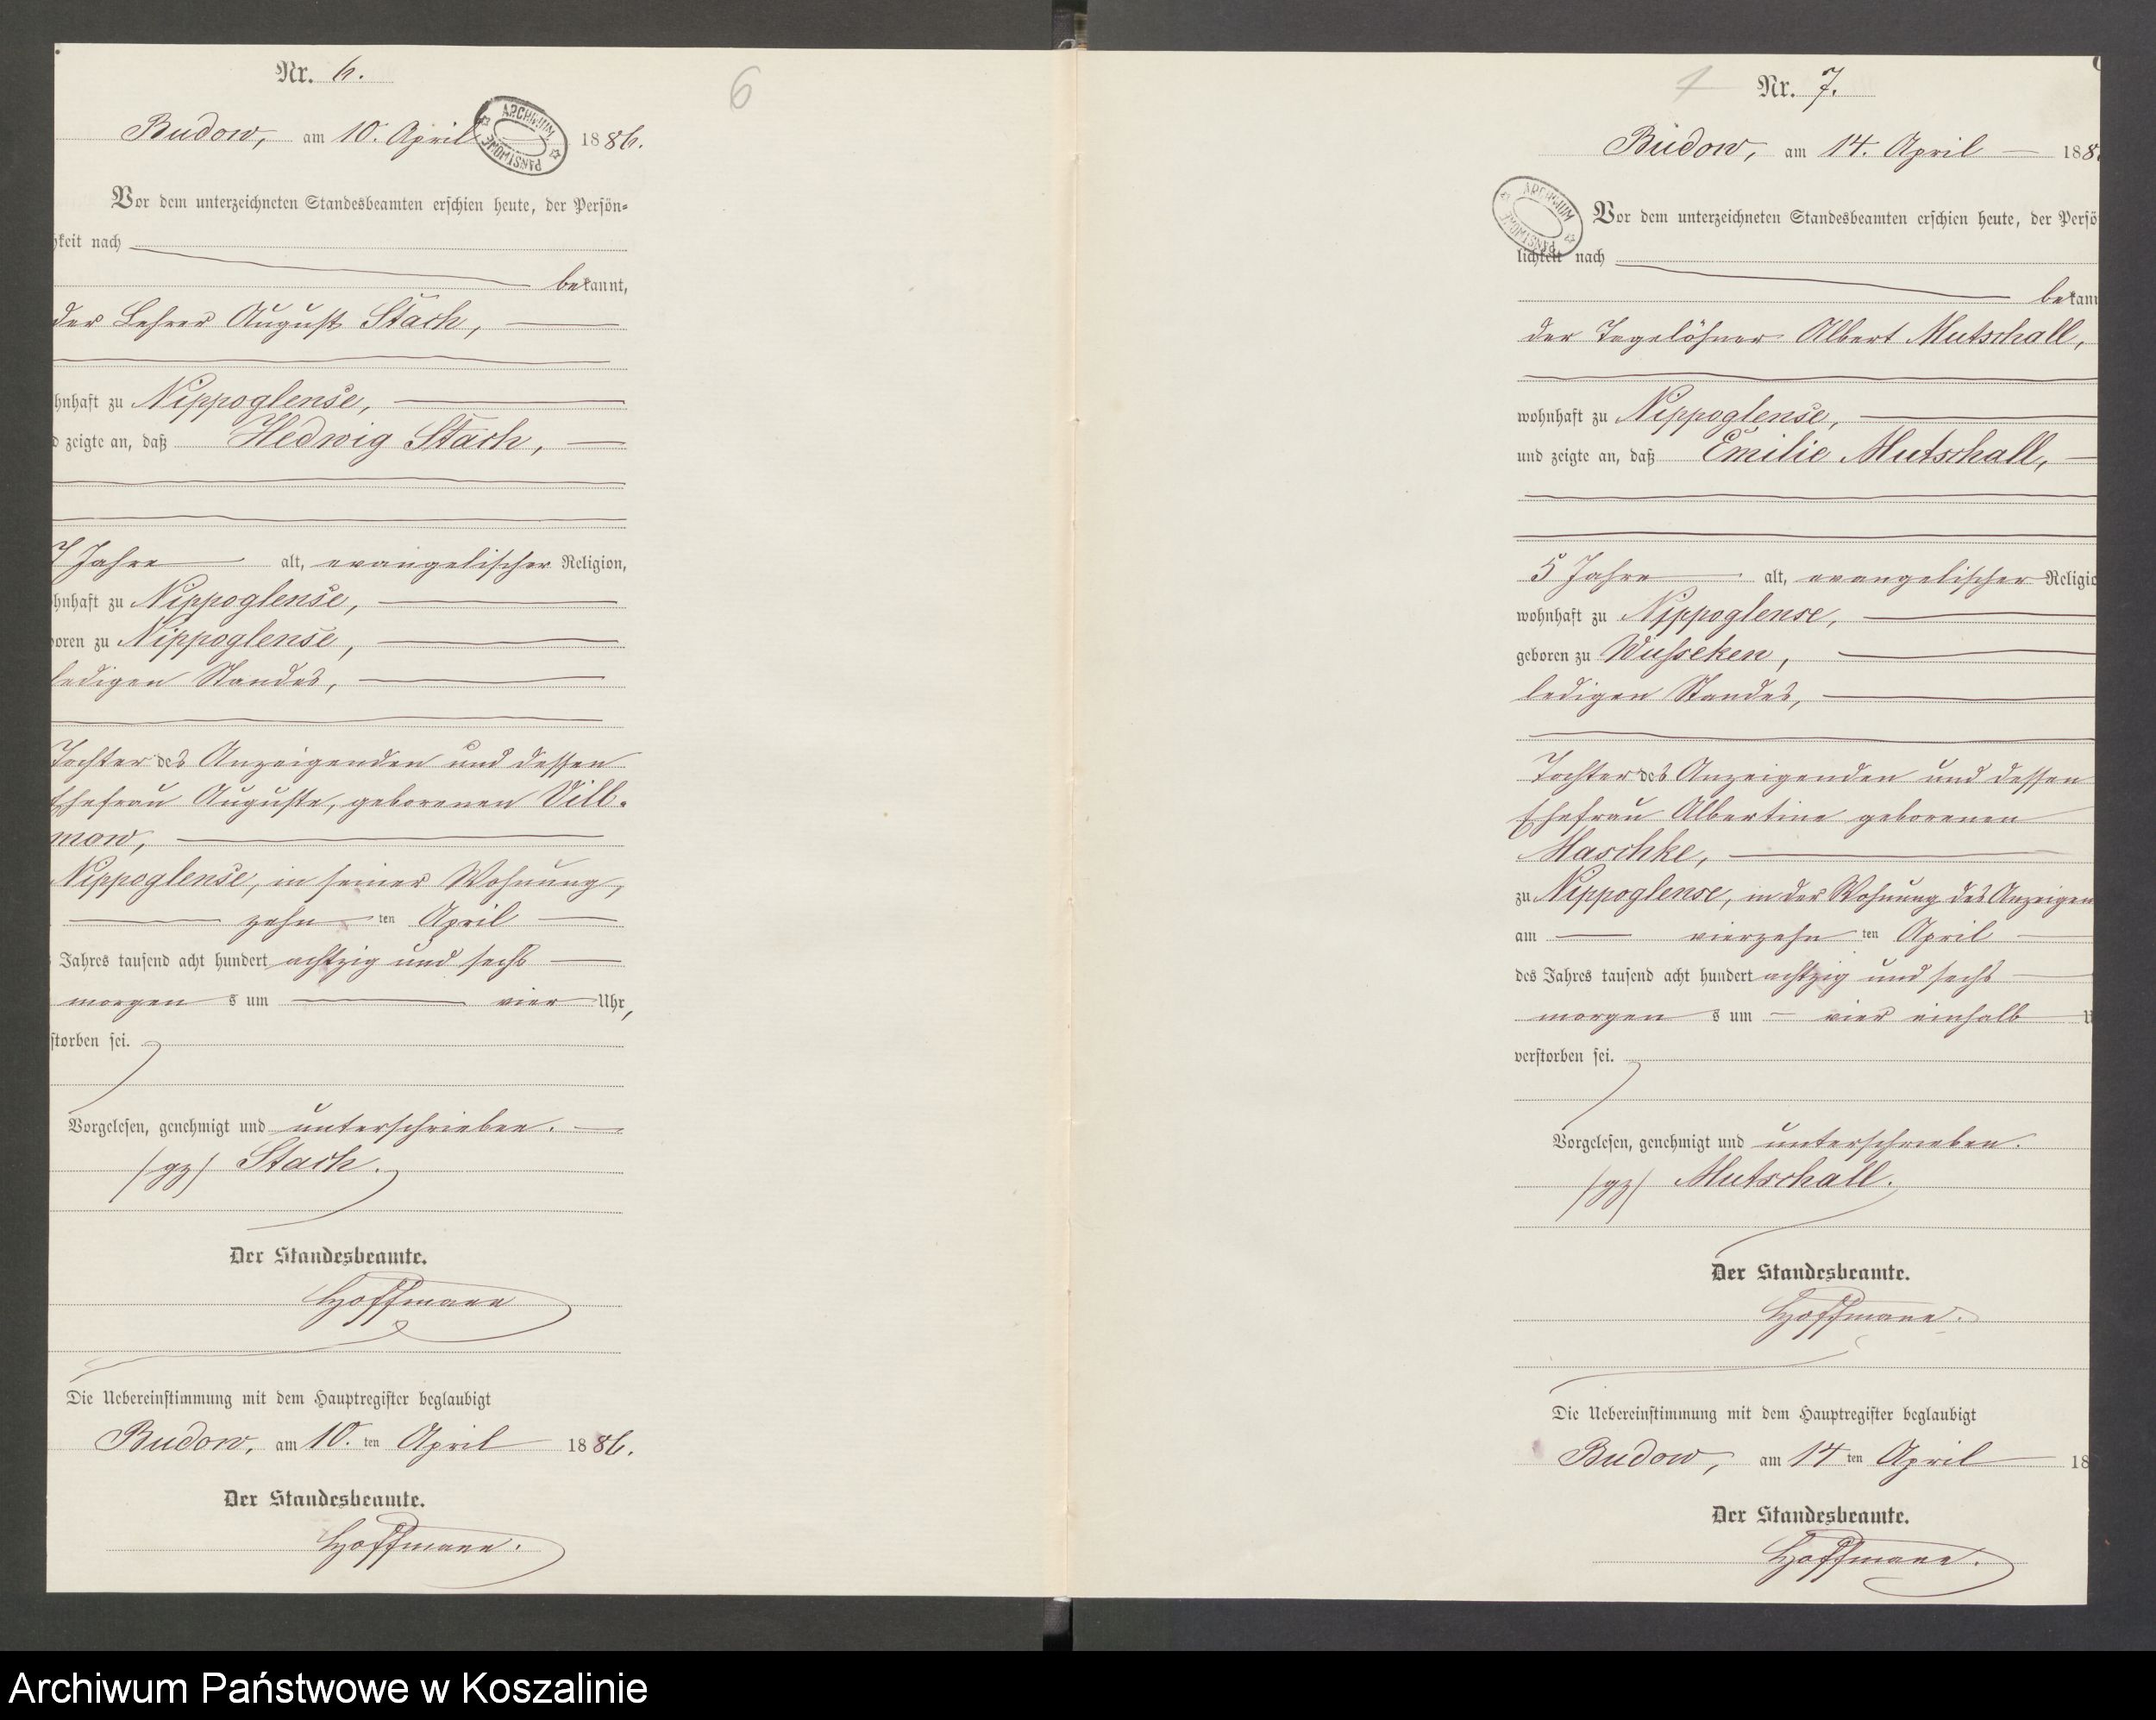 Nr. 6.
6
Budow, am 10. April 1886.
ARCHIWUM PAŃSTWOWE
Vor dem unterzeichneten Standesbeamten erschien heute, der Persön-
hkeit nach
bekannt,
der Lehrer August Stach,
hnhaft zu Nippoglense,
d zeigte an, daß Hedwig Stach,
7 Jahre alt, evangelischer Religion,
hnhaft zu Nippoglense,
boren zu Nippoglense,
ledigen Standes,
Tochter des Anzeigenden und dessen
Ehefrau Auguste, geborenen Vill-
mow,
Nippoglense, in seiner Wohnung,
zehn ten April
s Jahres tausend acht hundert achtzig und sechs
morgen s um vier Uhr,
storben sei.
Vorgelesen, genehmigt und unterschrieben.
/gz/ Stach.
Der Standesbeamte.
Hoffmann
Die Uebereinstimmung mit dem Hauptregister beglaubigt
Budow, am 10. ten April 1886.
Der Standesbeamte.
Hoffmann.
Nr. 7.
Budow, am 14. April 188
ARCHIWUM PAŃSTWOWE
Vor dem unterzeichneten Standesbeamten erschien heute, der Persö
lichkeit nach
bekan
der Tagelöhner Albert Mutschall,
wohnhaft zu Nippoglense,
und zeigte an, daß Emilie Mutschall,
5 Jahre alt, evangelischer Religio
wohnhaft zu Nippoglense,
geboren zu Wusseken,
ledigen Standes,
Tochter des Anzeigenden und dessen
Ehefrau Albertine geborenen
Maschke,
zu Nippoglense, in der Wohnung des Anzeigen
am vierzehn ten April
des Jahres tausend acht hundert achtzig und sechs
morgen s um vier einhalb U
verstorben sei.
Vorgelesen, genehmigt und unterschrieben.
/gz/ Mutschall.
Der Standesbeamte.
Hoffmann.
Die Uebereinstimmung mit dem Hauptregister beglaubigt
Budow, am 14 ten April 18
Der Standesbeamte.
Hoffmann.
Archiwum Państwowe w Koszalinie